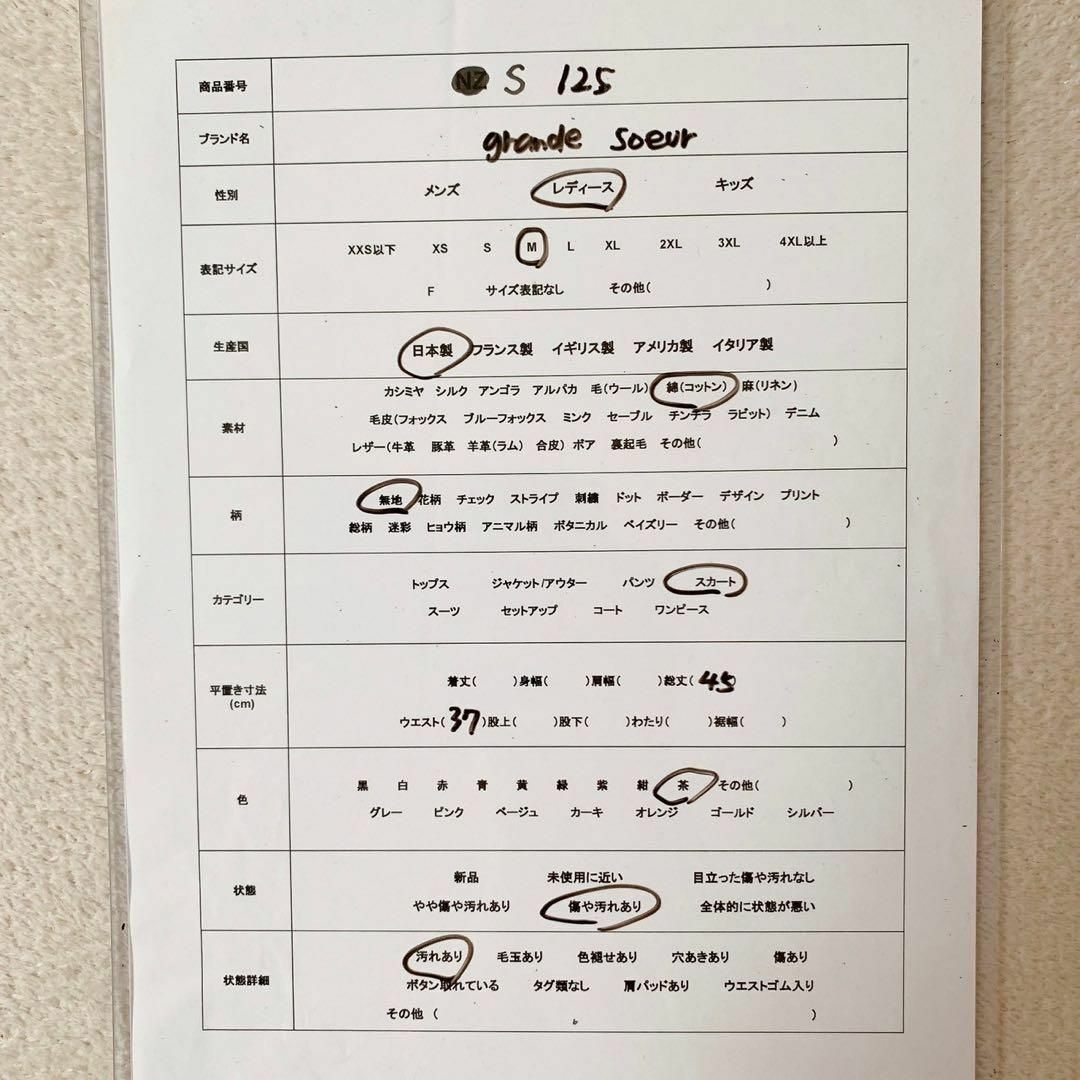 商品番号 NZ S 125
ブランド名 grande soeur
性別 メンズ レディース キッズ
表記サイズ
XXS以下 XS S M L XL 2XL 3XL 4XL以上
F サイズ表記なし その他( )
生産国 日本製 フランス製 イギリス製 アメリカ製 イタリア製
素材
カシミヤ シルク アンゴラ アルパカ 毛(ウール) 綿(コットン) 麻(リネン)
毛皮(フォックス ブルーフォックス ミンク セーブル チンチラ ラビット) デニム
レザー(牛革 豚革 羊革(ラム) 合皮) ボア 裏起毛 その他( )
柄
無地 花柄 チェック ストライプ 刺繍 ドット ボーダー デザイン プリント
総柄 迷彩 ヒョウ柄 アニマル柄 ボタニカル ペイズリー その他( )
カテゴリー
トップス ジャケット/アウター パンツ スカート
スーツ セットアップ コート ワンピース
平置き寸法
(cm)
着丈( )身幅( )肩幅( )総丈( 45)
ウエスト( 37 )股上( )股下( )わたり( )裾幅( )
色
黒 白 赤 青 黄 緑 紫 紺 茶 その他( )
グレー ピンク ベージュ カーキ オレンジ ゴールド シルバー
状態
新品 未使用に近い 目立った傷や汚れなし
やや傷や汚れあり 傷や汚れあり 全体的に状態が悪い
状態詳細
汚れあり 毛玉あり 色褪せあり 穴あきあり 傷あり
ボタン取れている タグ類なし 肩パッドあり ウエストゴム入り
その他 ( )